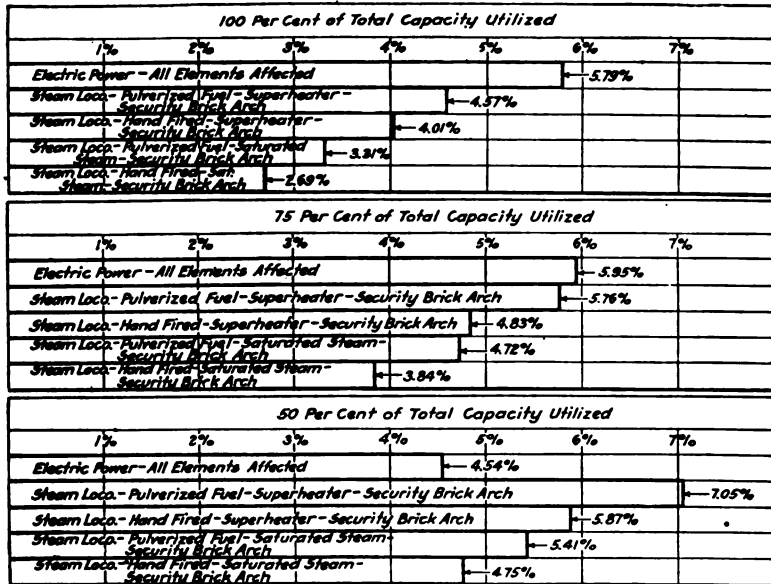 100 Per Cent of Total Capacity Utilized
1% 2% 3% 4% 5% 6% 7%
Electric Power-All Elements Affected 5.79%
Steam Loco.-Pulverized Fuel-Superheater-
Security Brick Arch 4.57%
Steam Loco.-Hand Fired-Superheater-
Security Brick Arch 4.01%
Steam Loco.-Pulverized Fuel-Saturated
Steam-Security Brick Arch 3.31%
Steam Loco.-Hand Fired-Sat.
Steam-Security Brick Arch 2.69%
75 Per Cent of Total Capacity Utilized
1% 2% 3% 4% 5% 6% 7%
Electric Power-All Elements Affected 5.95%
Steam Loco.-Pulverized Fuel-Superheater-Security Brick Arch 5.76%
Steam Loco.-Hand Fired-Superheater-Security Brick Arch 4.83%
Steam Loco.-Pulverized Fuel-Saturated Steam-
Security Brick Arch 4.72%
Steam Loco.-Hand Fired-Saturated Steam-
Security Brick Arch 3.84%
50 Per Cent of Total Capacity Utilized
1% 2% 3% 4% 5% 6% 7%
Electric Power-All Elements Affected 4.54%
Steam Loco.-Pulverized Fuel-Superheater-Security Brick Arch 7.05%
Steam Loco.-Hand Fired-Superheater-Security Brick Arch 5.87%
Steam Loco.-Pulverized Fuel-Saturated Steam-
Security Brick Arch 5.41%
Steam Loco.-Hand Fired-Saturated Steam-
Security Brick Arch 4.75%